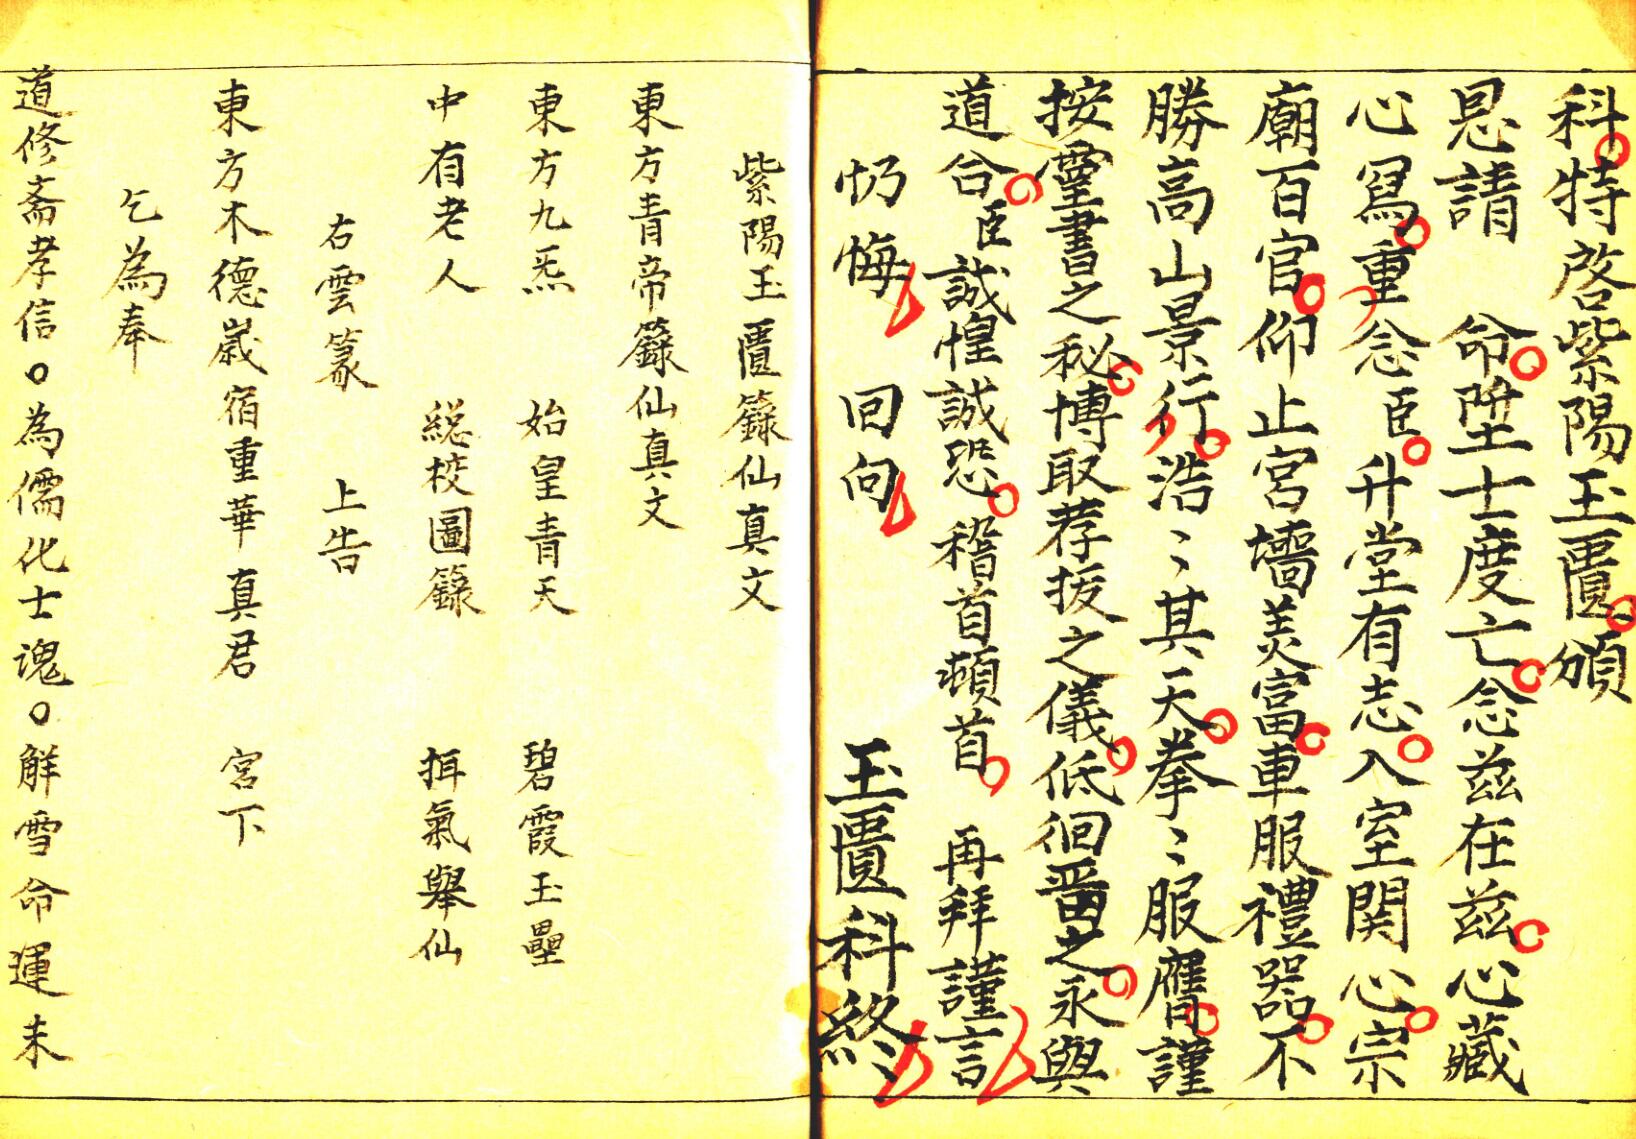 科特啓紫陽玉匱頒
恩請 命陞士度亡念茲在茲心藏
心冩重念臣升堂有志入室関心宗
廟百官仰止宮墻美富車服禮器不
勝高山景行浩〻其天拳〻服膺謹
按靈書之秘博取荐拔之儀低徊畱之永與
道合臣誠惶誠恐稽首頓首 再拜謹言
忏悔 回向 玉匱科終
紫陽玉匱籙仙真文
東方青帝籙仙真文
東方九炁 始皇青天 碧霞玉壘
中有老人 総校圖籙 挕氣舉仙
右雲篆 上告
東方木德嵗宿重華真君 宮下
乞為奉
道修斎孝信〇為儒化士魂〇觧雪命運未